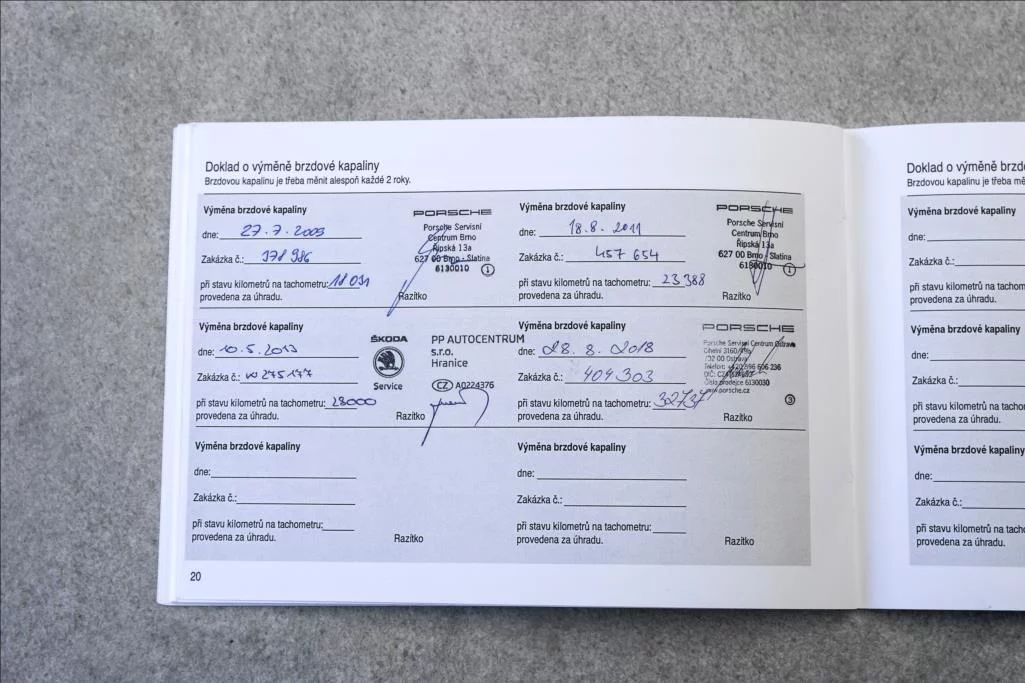 Doklad o výměně brzdové kapaliny
Brzdovou kapalinu je třeba měnit alespoň každé 2 roky.
Výměna brzdové kapaliny
dne: 27.7.2009
Zakázka č.: 378 986
při stavu kilometrů na tachometru: 18 031
provedena za úhradu.
Razítko
PORSCHE
Porsche Servisní
Centrum Brno
Řipská 13a
627 00 Brno - Slatina
6130010 1
Výměna brzdové kapaliny
dne: 18.8. 2011
Zakázka č.: 457 654
při stavu kilometrů na tachometru: 23 388
provedena za úhradu.
Razítko
PORSCHE
Porsche Servisní
Centrum Brno
Řipská 13a
627 00 Brno - Slatina
6130010 1
Výměna brzdové kapaliny
dne: 10.5.2013
Zakázka č.:
při stavu kilometrů na tachometru: 28000
provedena za úhradu.
Razítko
ŠKODA
Service
PP AUTOCENTRUM
s.r.o.
Hranice
CZ A0224376
Výměna brzdové kapaliny
dne: 28. 8. 2018
Zakázka č.: 404 303
při stavu kilometrů na tachometru: 32737
provedena za úhradu.
Razítko
PORSCHE
Porsche Servisní Centrum Ostrava
Cihelní
Telefon: 596 606 236
DIČ:
Číslo prodejce 6130030
www.porsche.cz
3
Výměna brzdové kapaliny
dne:
Zakázka č.:
při stavu kilometrů na tachometru:
provedena za úhradu.
Razítko
Výměna brzdové kapaliny
dne:
Zakázka č.:
při stavu kilometrů na tachometru:
provedena za úhradu.
Razítko
20
Doklad o výměně brzdo
Brzdovou kapalinu je třeba mě
Výměna brzdové kapaliny
dne:
Zakázka č.:
při stavu kilometrů na tacho
provedena za úhradu.
Výměna brzdové kapaliny
dne:
Zakázka č.:
při stavu kilometrů na tach
provedena za úhradu.
Výměna brzdové kapaliny
dne:
Zakázka č.:
při stavu kilometrů na tach
provedena za úhradu.